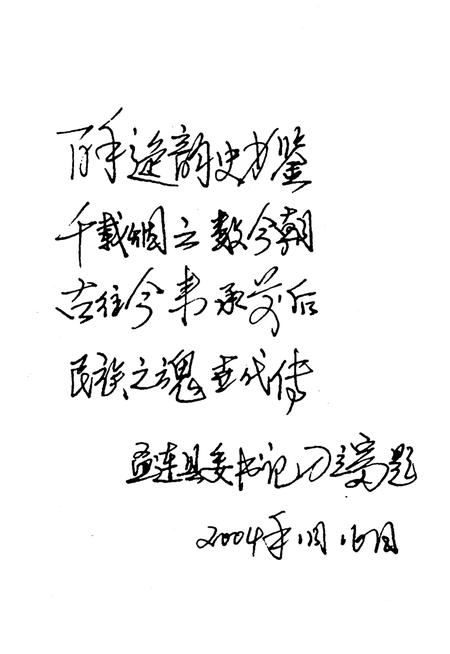 百年逸韵史为鉴
千载风云数今朝
古往今来承前后
民族之魂世代传
孟连县委书记刀立富题
2004年1月16日